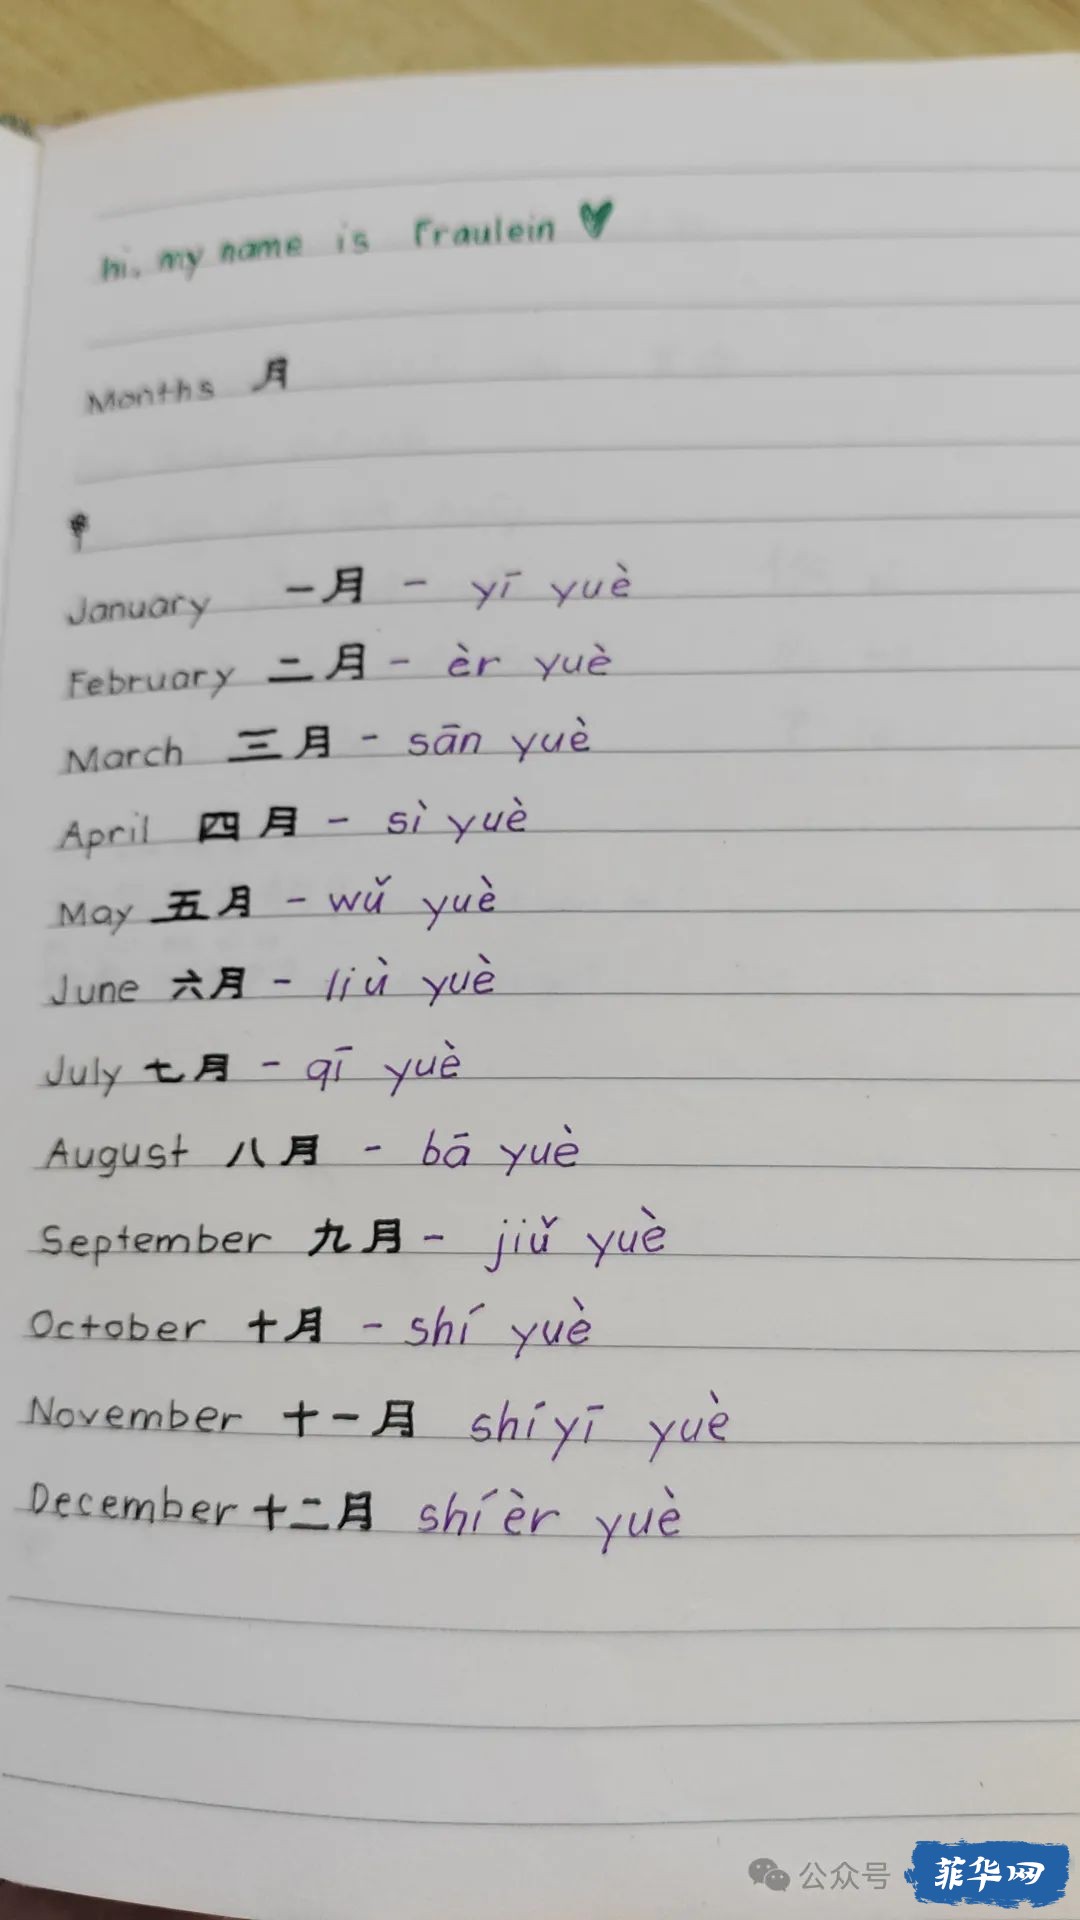 hi. my name is Fraulein
Months 月
January 一月 - yī yuè
February 二月 - èr yuè
March 三月 - sān yuè
April 四月 - sì yuè
May 五月 - wǔ yuè
June 六月 - liù yuè
July 七月 - qī yuè
August 八月 - bā yuè
September 九月 - jiǔ yuè
October 十月 - shí yuè
November 十一月 shíyī yuè
December 十二月 shíèr yuè
公众号 菲华网